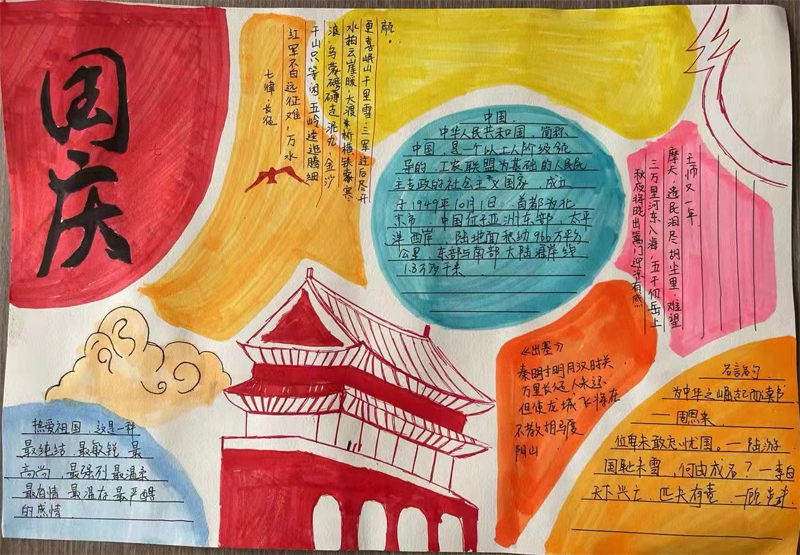 国庆
七律·长征
红军不怕远征难,万水
千山只等闲.五岭逶迤腾细
浪,乌蒙磅礴走泥丸.金沙
水拍云崖暖,大渡桥横铁索寒
更喜岷山千里雪.三军过后尽开
颜.
中国
中华人民共和国,简称
中国,是一个以工人阶级领
导的,工农联盟为基础的人民民
主专政的社会主义国家,成立
于1949年10月1日,首都为北
京市,中国位于亚洲东部,太平
洋西岸,陆地面积约960万平方
公里,东部与南部大陆海岸线
1.8万多千米
秋夜将晓出篱门迎凉有感
三万里河东入海,五千仞岳上
摩天.遗民泪尽胡尘里.难望
王师又一年
《出塞》
秦时明月汉时关
万里长征人未还
但使龙城飞将在
不教胡马度
阴山
名言名句
为中华之崛起而读书
——周恩来
位卑未敢忘忧国.——陆游
国耻未雪,何由成名?—李白
天下兴亡.匹夫有责.—顾炎武
热爱祖国 这是一种
最纯洁 最敏锐 最
高尚 最强烈 最温柔
最有情 最温存 最严酷
的感情